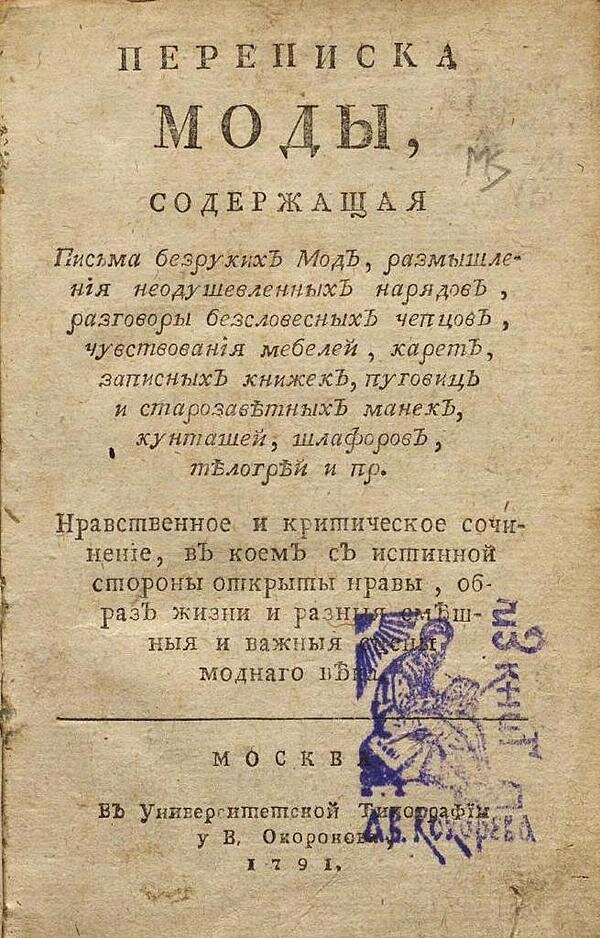 ПЕРЕПИСКА
МОДЫ,
СОДЕРЖАЩАЯ
Письма безрукихъ Модъ, размышле-
нія неодушевленныхъ нарядовъ,
разговоры безсловесныхъ чепцовъ,
чувствованія мебелей, каретъ,
записныхъ книжекъ, пуговицъ
и старозавѣтныхъ манекъ,
кунташей, шлафоровъ,
тѣлогрѣй и пр.
Нравственное и критическое сочи-
неніе, въ коемъ съ истинной
стороны открыты нравы, об-
разъ жизни и разныя смѣш-
ныя и важныя сцены
моднаго вѣка.
МОСКВА
Въ Университетской Типографіи
у В. Окорокова,
1791.
Из книг
А.В. Кокорева